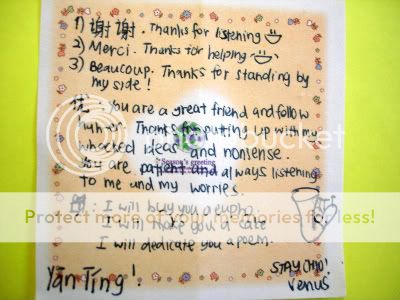 1) 謝謝. Thanks for listening
2) Merci. Thanks for helping
3) Beaucoup. Thanks for standing by
my side!
: You are a great friend and fellow
human. Thanks for putting up with my
whacked ideas and nonsense.
Season's greeting
You are patient and always listening
to me and my worries.
Protect more of your memories for less!
: I will buy you a eupho.
I will make you a
I will dedicate you a poem.
Yān Tíng!
STAY CHIO!
Venus